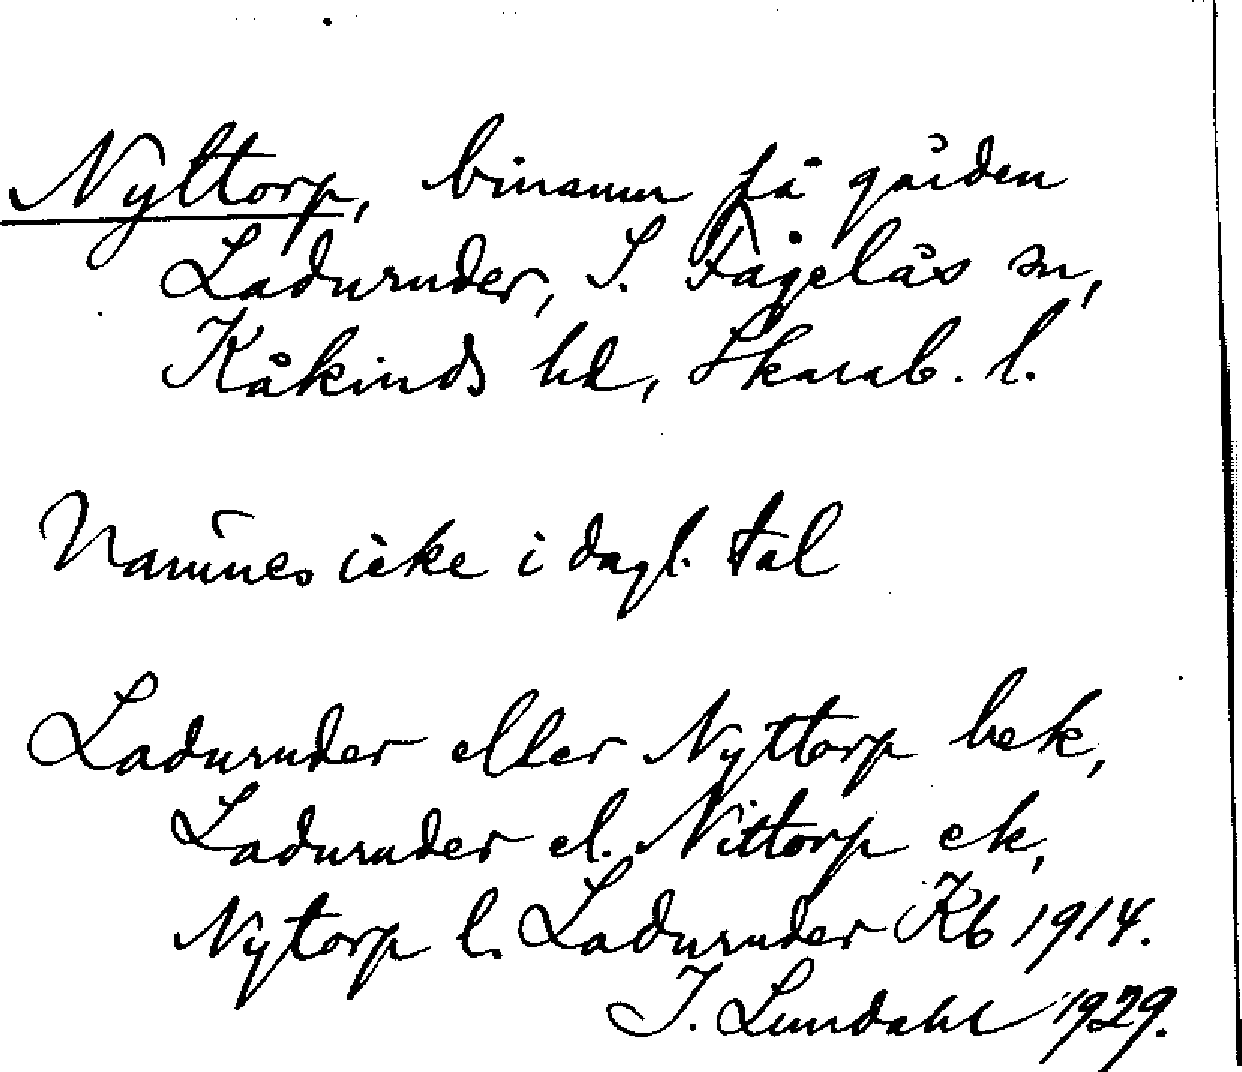 Nyttorp, binamn på gården
Laduruder, S. Fågelås sn,
Kåkinds hd, Skarab. l.
Namnes icke i dagl. tal
Laduruder eller Nyttorp bek,
Laduruder el. Nittorp ek,
Nytorp l. Laduruder Kb 1914.
I. Lundahl 1929.